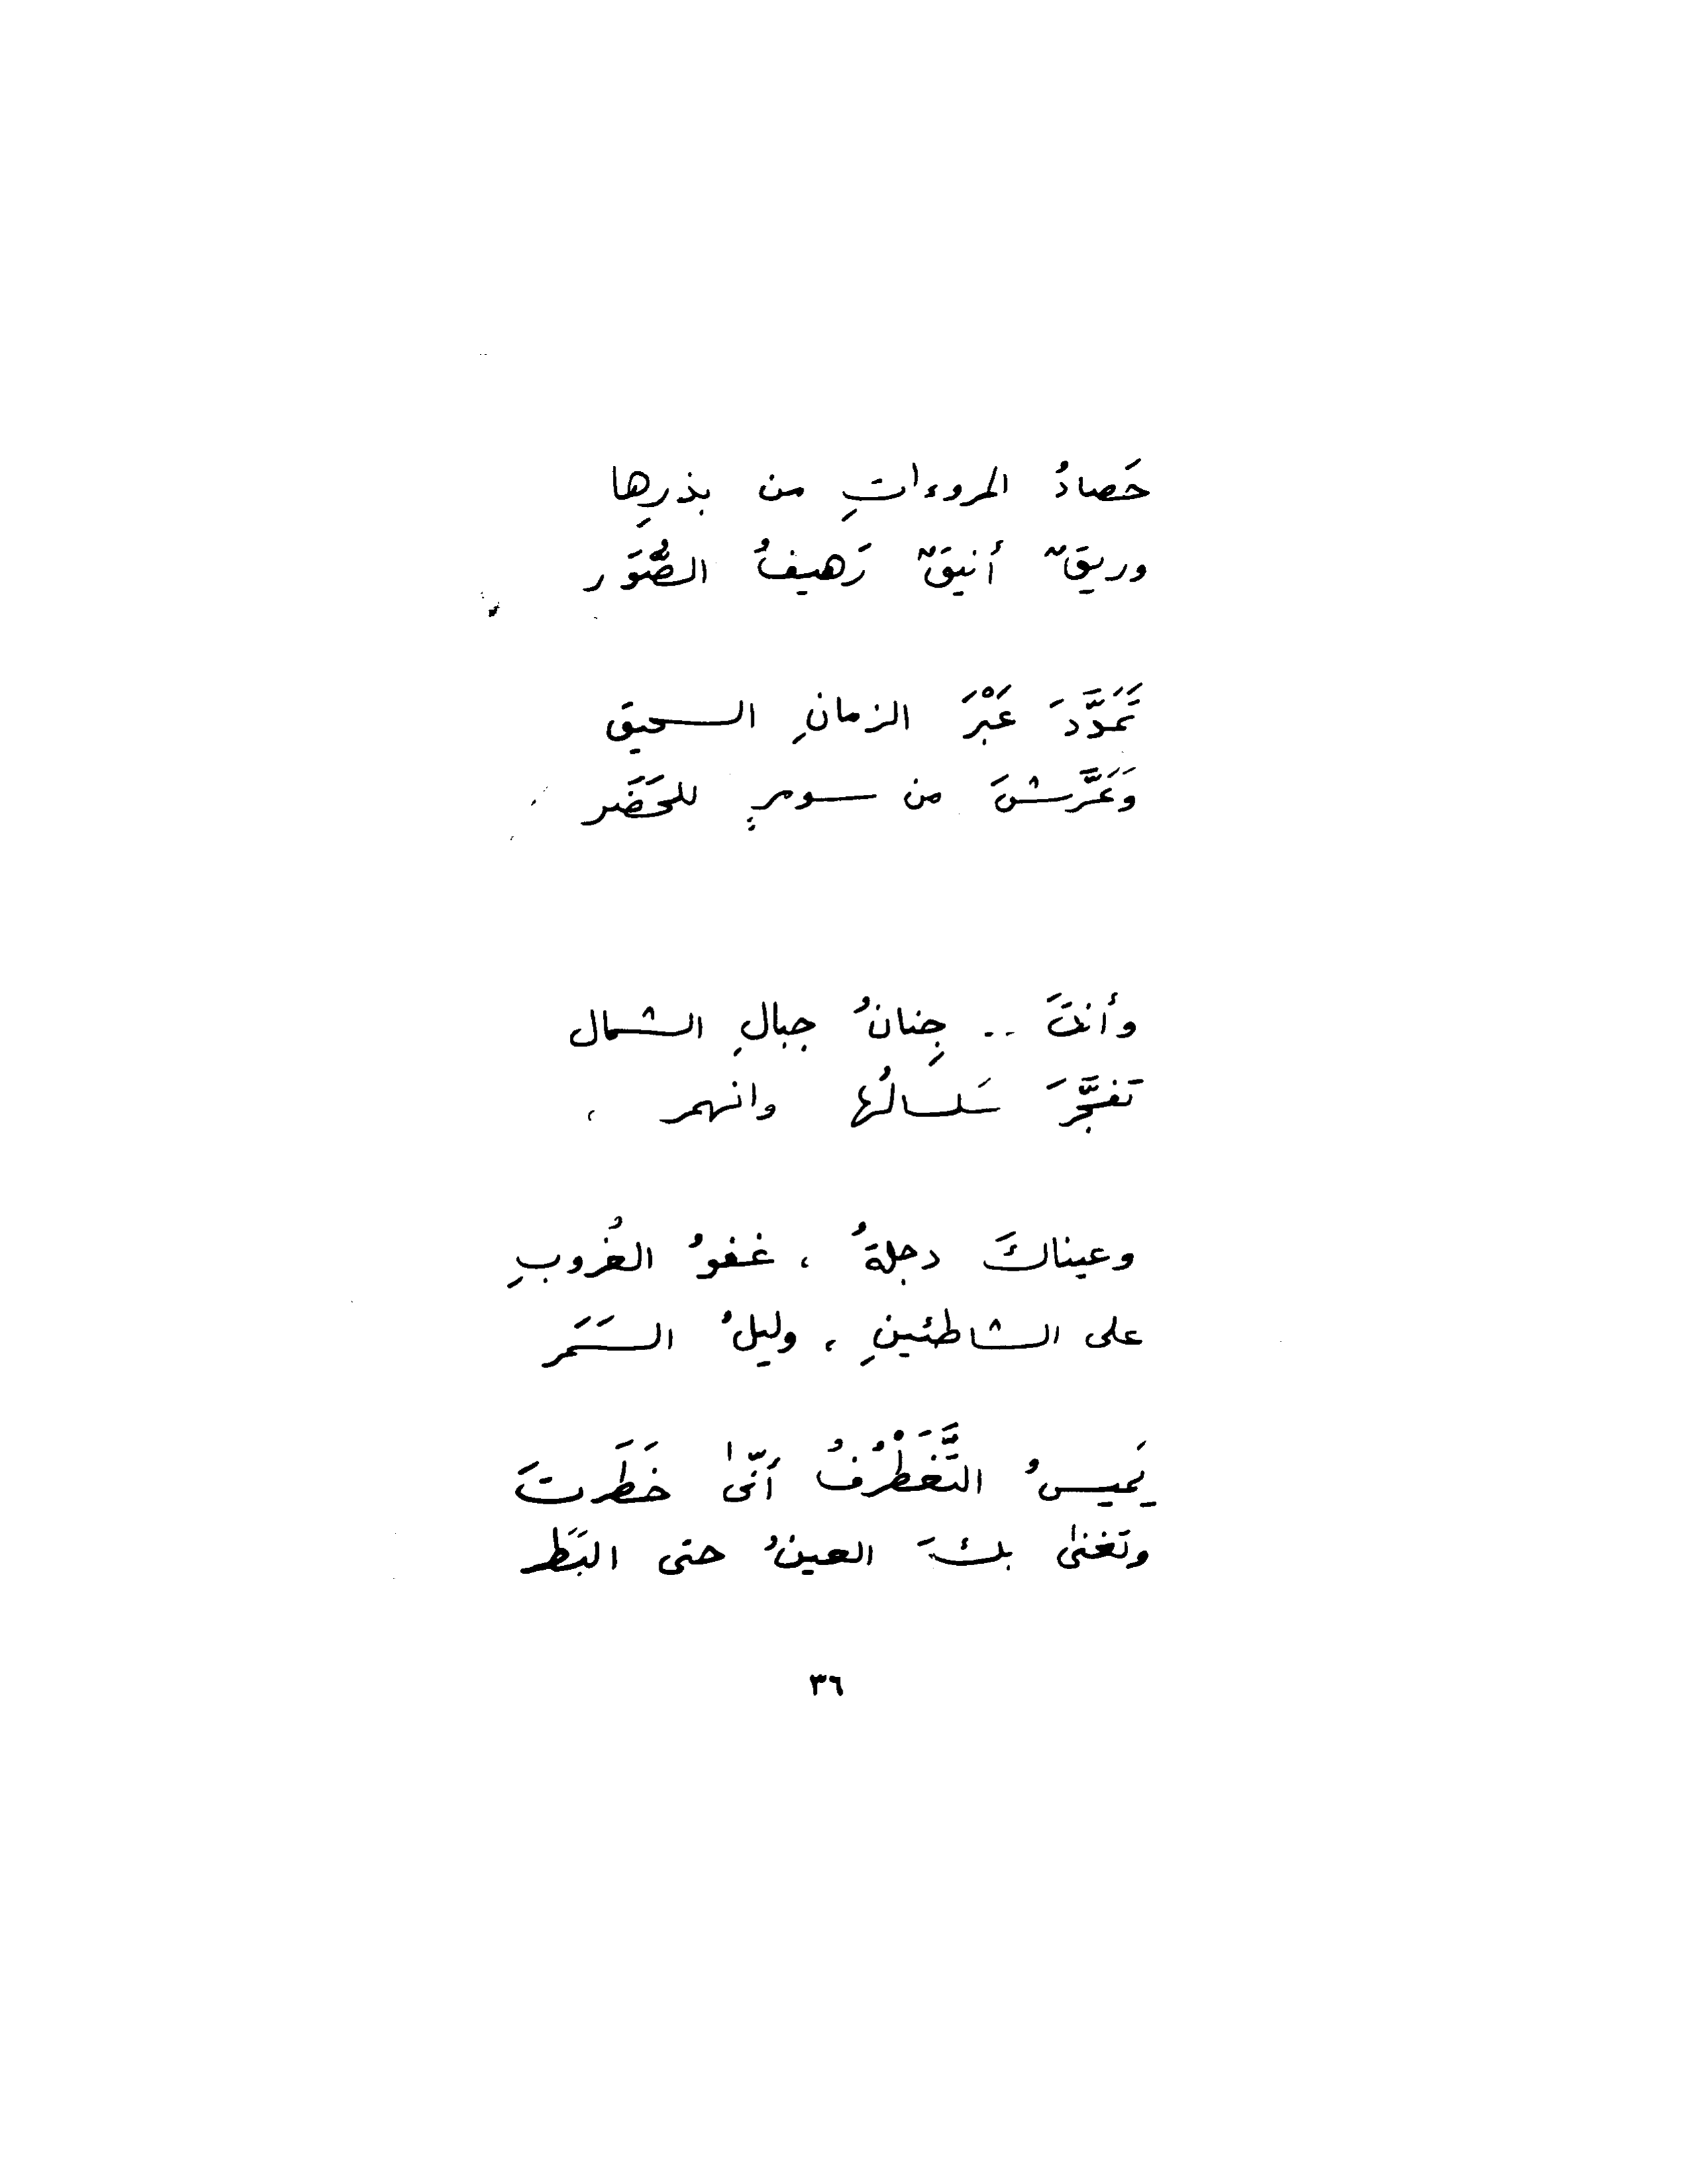 حَصادُ المروءاتِ من بذرِها
وريقٌ أنيقٌ رَهيفُ الصُّوَر
تَمَدَّدَ عَبْرَ الزمانِ السحيق
وَعَرَّشَ من سومرٍ للحَضَر
وأنتَ .. جِنانُ جبالِ الشمال
تفجَّرَ سَلسالُها وانهمر ،
وعيناكَ دجلةُ ، غفوُ الغُروبِ
على الشاطئينِ ، وليلُ السَمَر
يَميسُ التَّغَطْرُفُ أنّىٰ خَطَرتَ
وتغنىٰ بكَ العينُ حتى البَطَر
٣٦